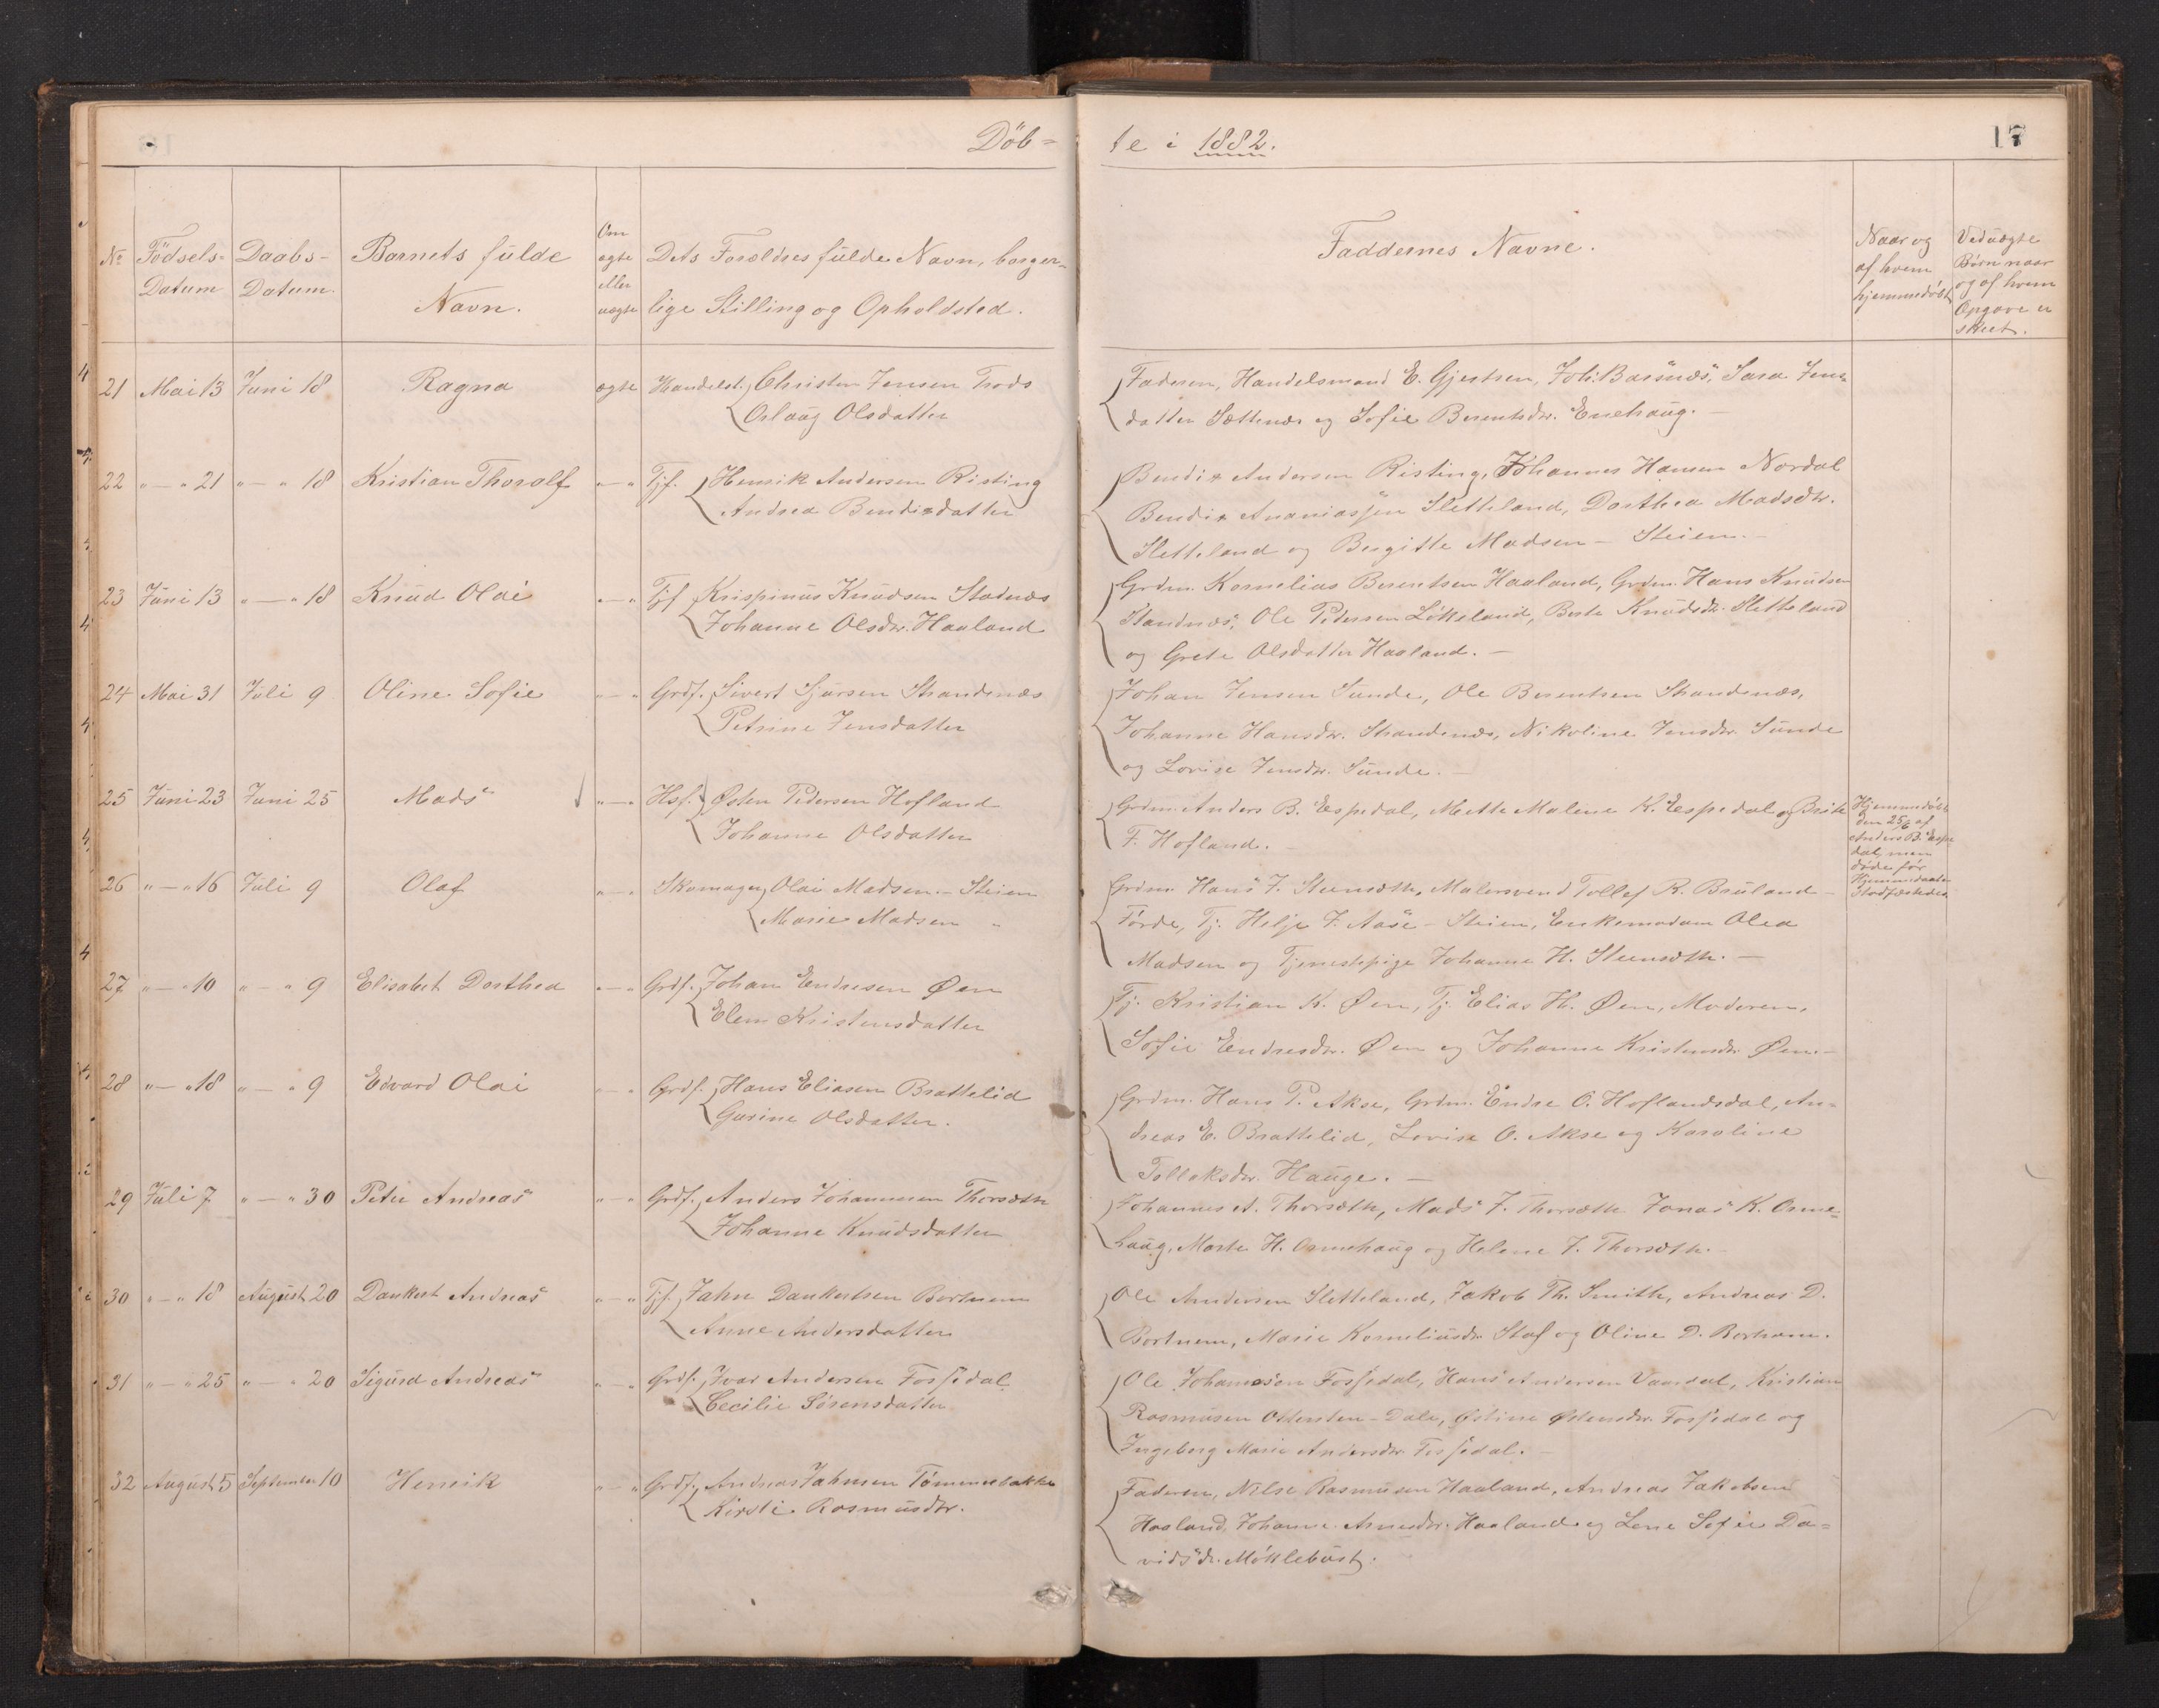 Döb-
te i 1882.
17
No
Födsels-
Datum
Daabs-
Datum.
Barnets fulde
Navn.
Om
ægte
eller
uægte
Dets Forældres fulde Navn, borger-
lige Stilling og Opholdsted.
Faddernes Navne.
Naar og
af hvem
hjemmedöbt
Ved uægte
Børn naar
og af hvem
Opgave er
skeet.
21 Mai 13 Juni 18 Ragna ægte Handelst. Christen Jensen Trods
Oslaug Olsdatter
Faderen, Handelsmand E. Gjertsen, Joh. Barsnæs, Sara Jens-
datter Sættenæs og Sofie Berentsdr. Enehaug.
22 " — " 21 " — " 18 Kristian Thoralf " — " Tjf. Henrik Andersen Risting
Andrea Bendixdatter
Bendix Andersen Risting, Johannes Hansen Nordal
Bendix Ananiassen Sletteland, Dorthea Madsdtr.
Sletteland og Bergitte Madsen - Steien.
23 Juni 13 " — " 18 Knud Olai " — " Tjf. Krispinus Knudsen Stadnæs
Johanne Olsdr. Haaland
Grdm. Kornelius Berentsen Haaland, Grdm. Hans Knudsen
Standnæs, Ole Pedersen Lökkeland, Berte Knudsdr. Sletteland
og Grete Olsdatter Haaland.
24 Mai 31 Juli 9 Oline Sofie " — " Grdf. Sivert Sjursen Strandenæs
Petrine Jensdatter
Johan Jensen Sunde, Ole Berentsen Strandenæs,
Johanne Hansdr. Strandenæs, Nikoline Jensdr. Sunde
og Lovise Jensdr. Sunde.
25 Juni 23 Juni 25 Mads " — " Hsf. Østen Pedersen Hofland
Johanne Olsdatter
Grdm. Anders B. Espedal, Mette Malene K. Espedal og Brite
F. Hofland.
Hjemmedöbt
den 25/6 af
Anders B. Espe
dal, men
døde før
Hjemmedaaben
Stadfæstedes.
26 " — " 16 Juli 9 Olaf " — " Skomager Olai Madsen - Steien
Marie Madsen "
Grdm. Hans J. Steensæth, Malersvend Tollef R. Bruland -
Førde, Tj. Helje J. Aase - Steien, Enkemadam Olea
Madsen og Tjenestepige Johanne H. Steensæth.
27 " — " 10 " — " 9 Elisabet Dorthea " — " Grdf. Johan Endresen Øen
Elen Kristensdatter
Tj. Kristian K. Øen, Tj. Elias H. Øen, Moderen,
Sofie Endresdr. Øen og Johanne Kristensdr. Øen.
28 " — " 18 " — " 9 Edvard Olai " — " Grdf. Hans Eliasen Brattelid
Gurine Olsdatter.
Grdm. Hans P. Akse, Grdm. Endre O. Hoflandsdal, An-
dreas E. Brattelid, Lovise O. Akse og Karoline
Tollaksdr. Hauge.
29 Juli 7 " — " 30 Peter Andreas " — " Grdf. Anders Johannesen Thorsæth
Johanne Knudsdatter
Johannes A. Thorsæth, Mads J. Thorsæth Jonas K. Orme-
haug, Marte H. Ormehaug og Helene J. Thorsæth.
30 " — " 18 August 20 Dankert Andreas " — " Tjf. Jahn Dankertsen Bortnem
Anne Andersdatter
Ole Andersen Sletteland, Jakob Th. Smith, Andreas D.
Bortnem, Marie Korneliusdr. Staf og Oline D. Bortnem.
31 " — " 25 " — " 20 Sigurd Andreas " — " Grdf. Ivar Andersen Fossedal
Cecilie Sørensdatter
Ole Johannesen Fossedal, Hans Andersen Vaardal, Kristian
Rasmusen Ottersten - Dale, Østine Østensdr. Fossedal og
Ingeborg Marie Andersdr. Fossedal.
32 August 5 September 10 Henrik " — " Grdf. Andreas Jahnsen Tømmerbakke
Kirsti Rasmusdtr.
Faderen, Nils Rasmusen Haaland, Andreas Jakobsen
Haaland, Johanne Arnesdr. Haaland og Lene Sofie Da-
vidsdr. Møklebust.